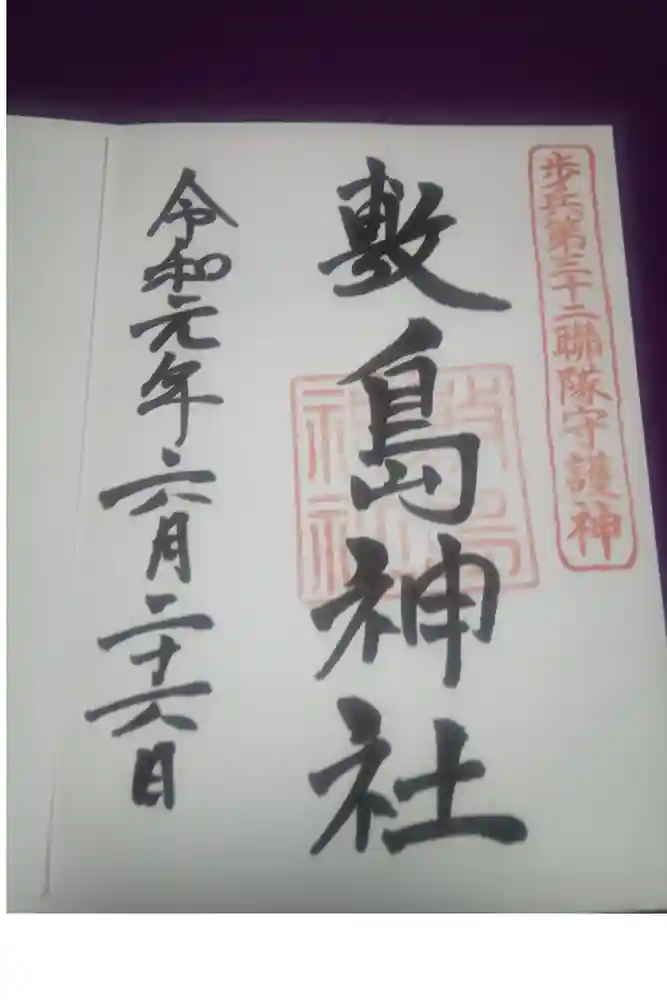 歩兵第三十二聯隊守護神
敷島神社
令和元年六月二十六日